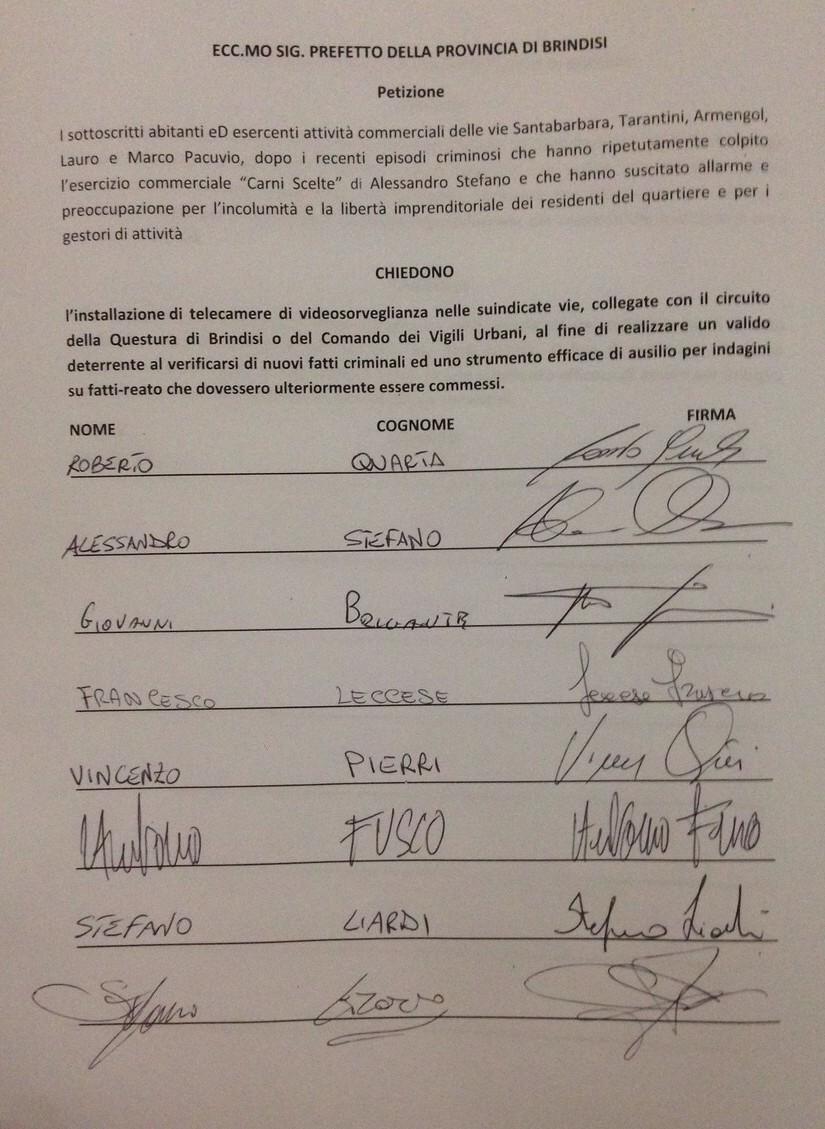 ECC.MO SIG. PREFETTO DELLA PROVINCIA DI BRINDISI
Petizione
I sottoscritti abitanti eD esercenti attività commerciali delle vie Santabarbara, Tarantini, Armengol,
Lauro e Marco Pacuvio, dopo i recenti episodi criminosi che hanno ripetutamente colpito
l'esercizio commerciale “Carni Scelte” di Alessandro Stefano e che hanno suscitato allarme e
preoccupazione per l'incolumità e la libertà imprenditoriale dei residenti del quartiere e per i
gestori di attività
CHIEDONO
l'installazione di telecamere di videosorveglianza nelle suindicate vie, collegate con il circuito
della Questura di Brindisi o del Comando dei Vigili Urbani, al fine di realizzare un valido
deterrente al verificarsi di nuovi fatti criminali ed uno strumento efficace di ausilio per indagini
su fatti-reato che dovessero ulteriormente essere commessi.
NOME COGNOME FIRMA
ROBERTO QUARTA
ALESSANDRO STEFANO
GIOVANNI BRIGANTE
FRANCESCO LECCESE Leccese Francesco
VINCENZO PIERRI
FUSCO
STEFANO LIARDI Stefano Liardi
Stefano